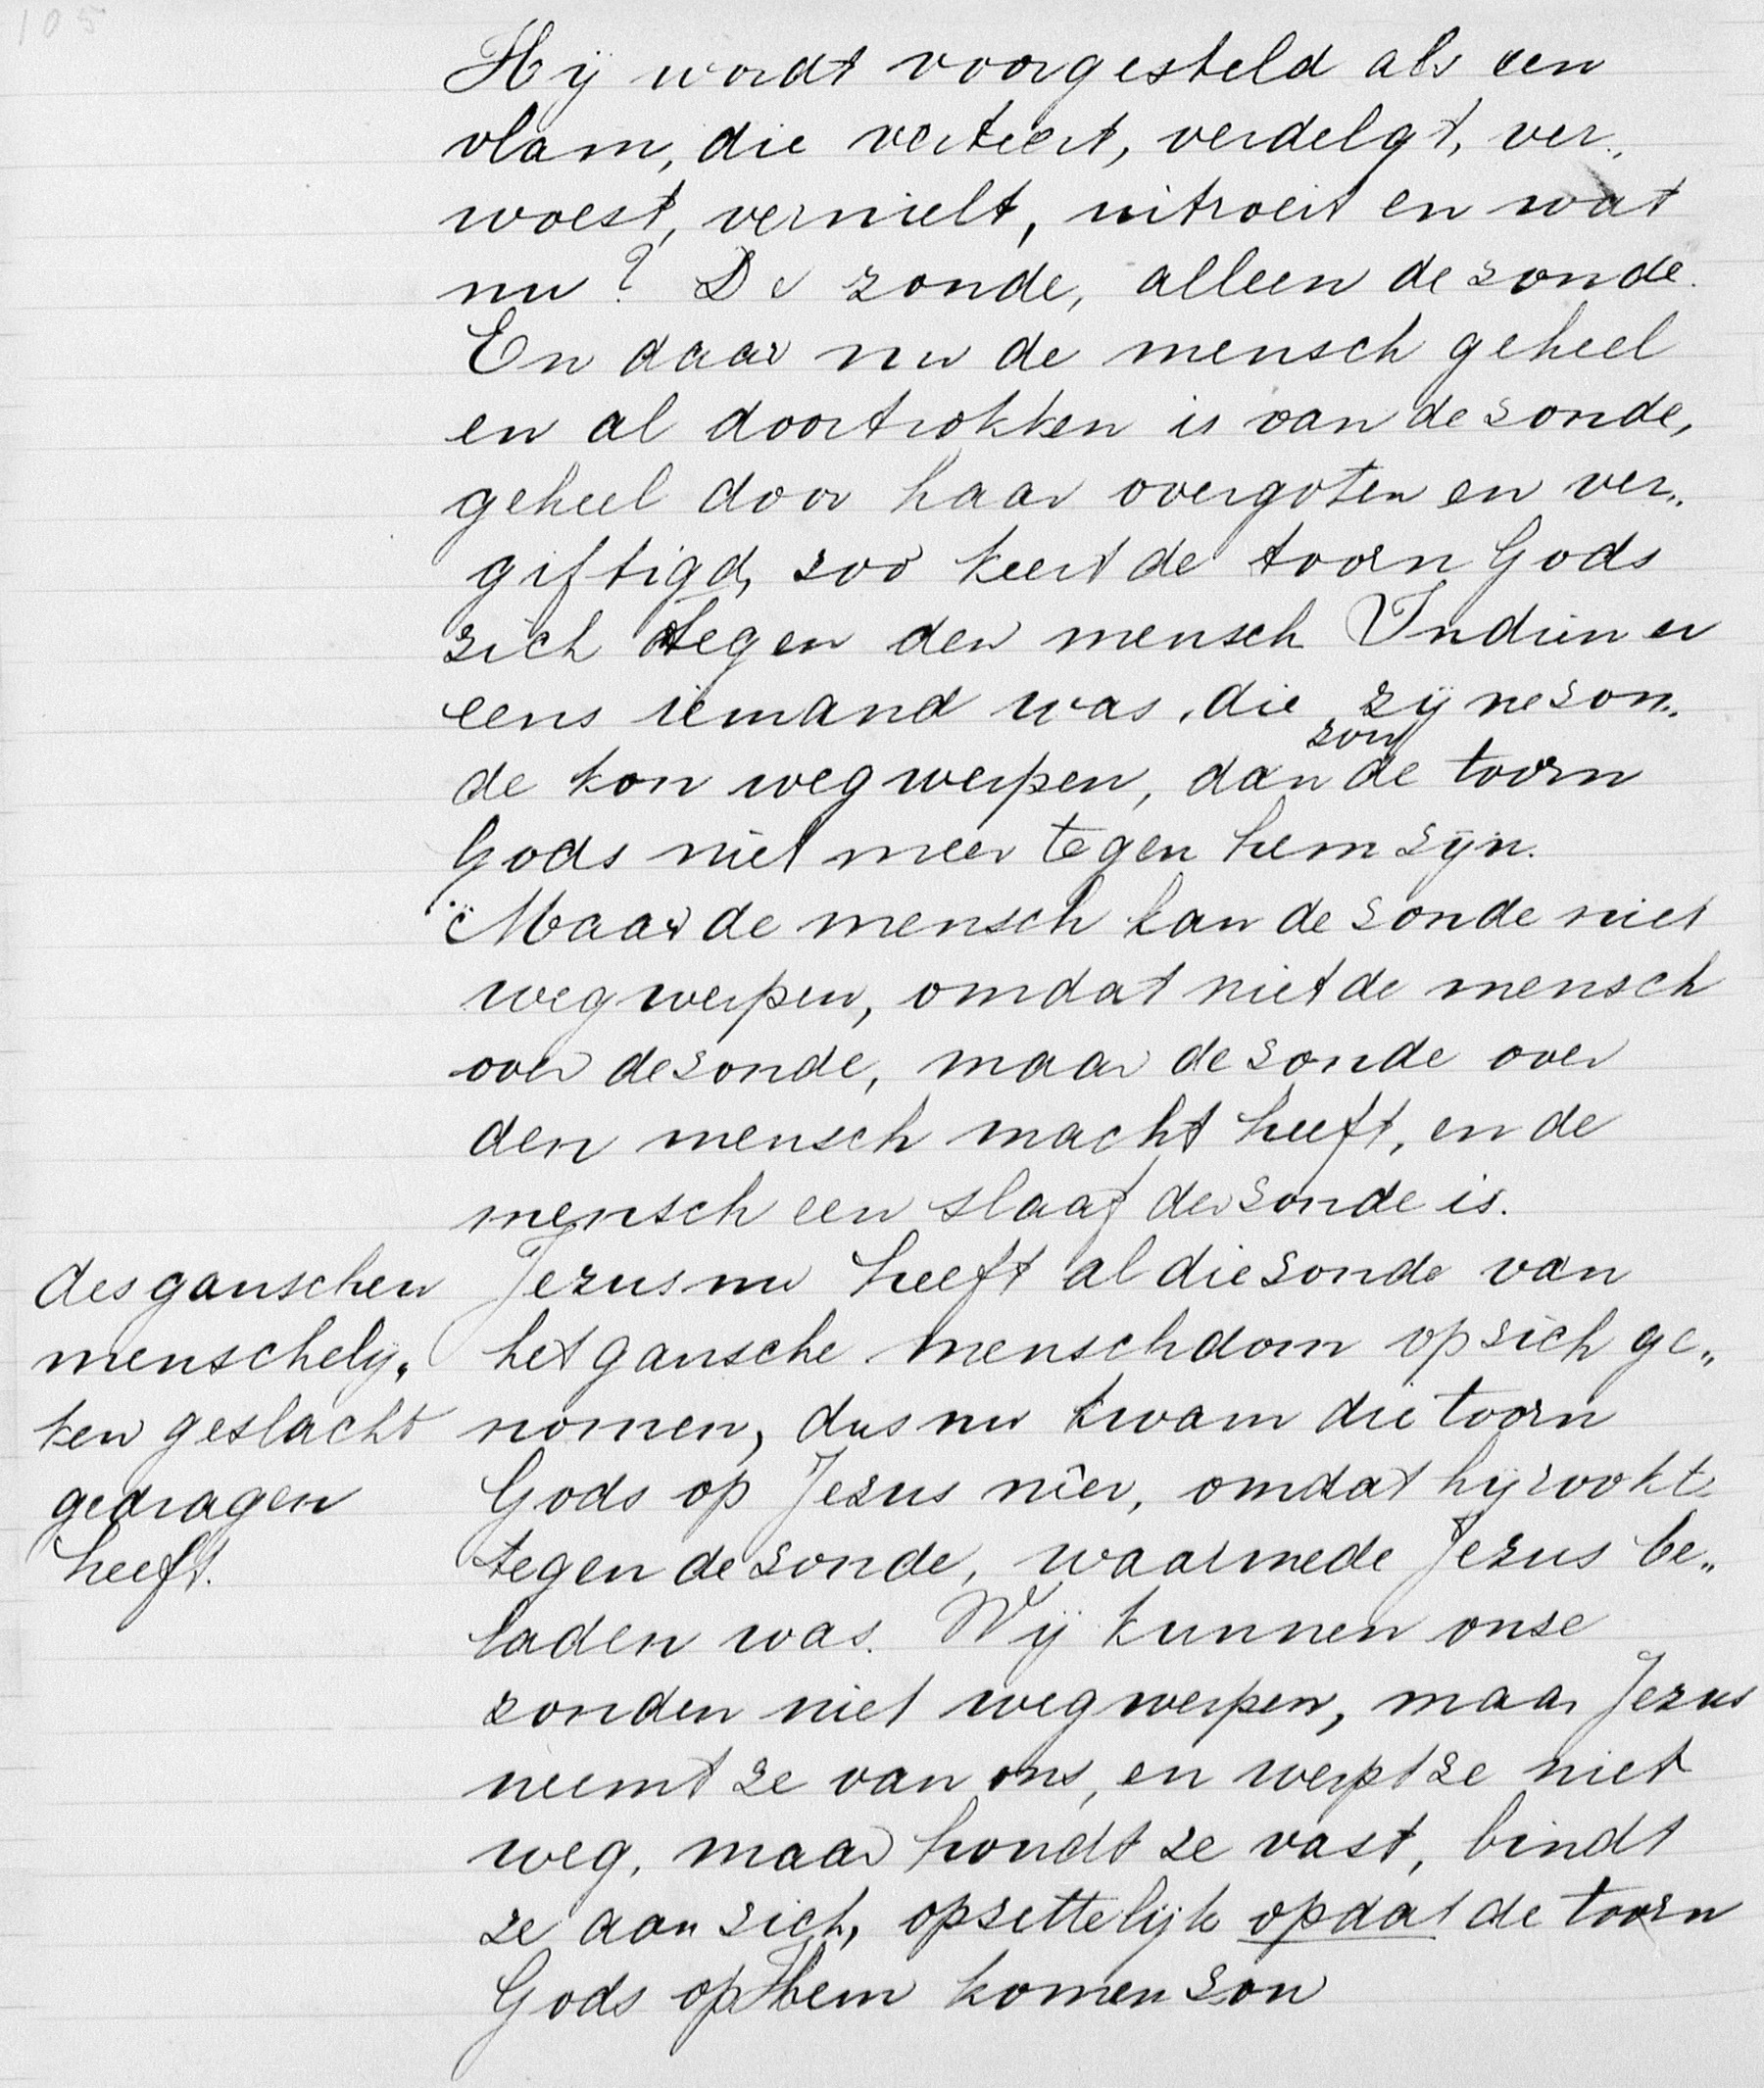 105
Hij wordt voorgesteld als een
vlam, die verteert, verdelgt, ver„
woest, vernielt, uitroeit en wat
nu? De zonde, alleen de zonde.
En daar nu de mensch geheel
en al doortrokken is van de zonde,
geheel door haar overgoten en ver„
giftigd, zoo keert de toorn Gods
zich tegen den mensch Indien er
eens iemand was, die zijne zon„
de kon wegwerpen, dan zou de toorn
Gods niet meer tegen hem zijn.
Maar de mensch kan de zonde niet
wegwerpen, omdat niet de mensch
over de zonde, maar de zonde over
den mensch macht heeft, en de
mensch een slaaf der zonde is.
des ganschen
menschelij„
ken geslacht
gedragen
heeft.
Jezus nu heeft al die zonde van
het gansche menschdom op zich ge„
nomen, dus nu kwam die toorn
Gods op Jezus neer, omdat hij rookt
tegen de zonde, waarmede Jezus be„
laden was. Wij kunnen onze
zonden niet wegwerpen, maar Jezus
neemt ze van ons, en werpt ze niet
weg, maar houdt ze vast, bindt
ze aan zich, opzettelijk opdat de toorn
Gods op Hem komen zou